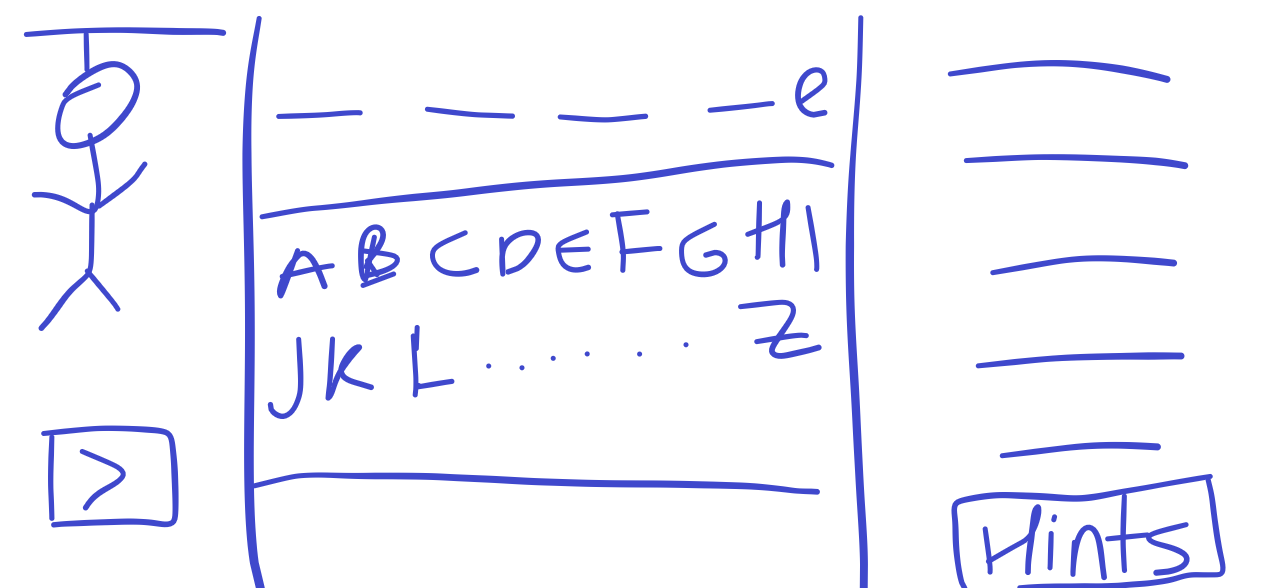 _ _ _ _ e
A B C D E F G H I
J K L . . . . . . Z
>
Hints